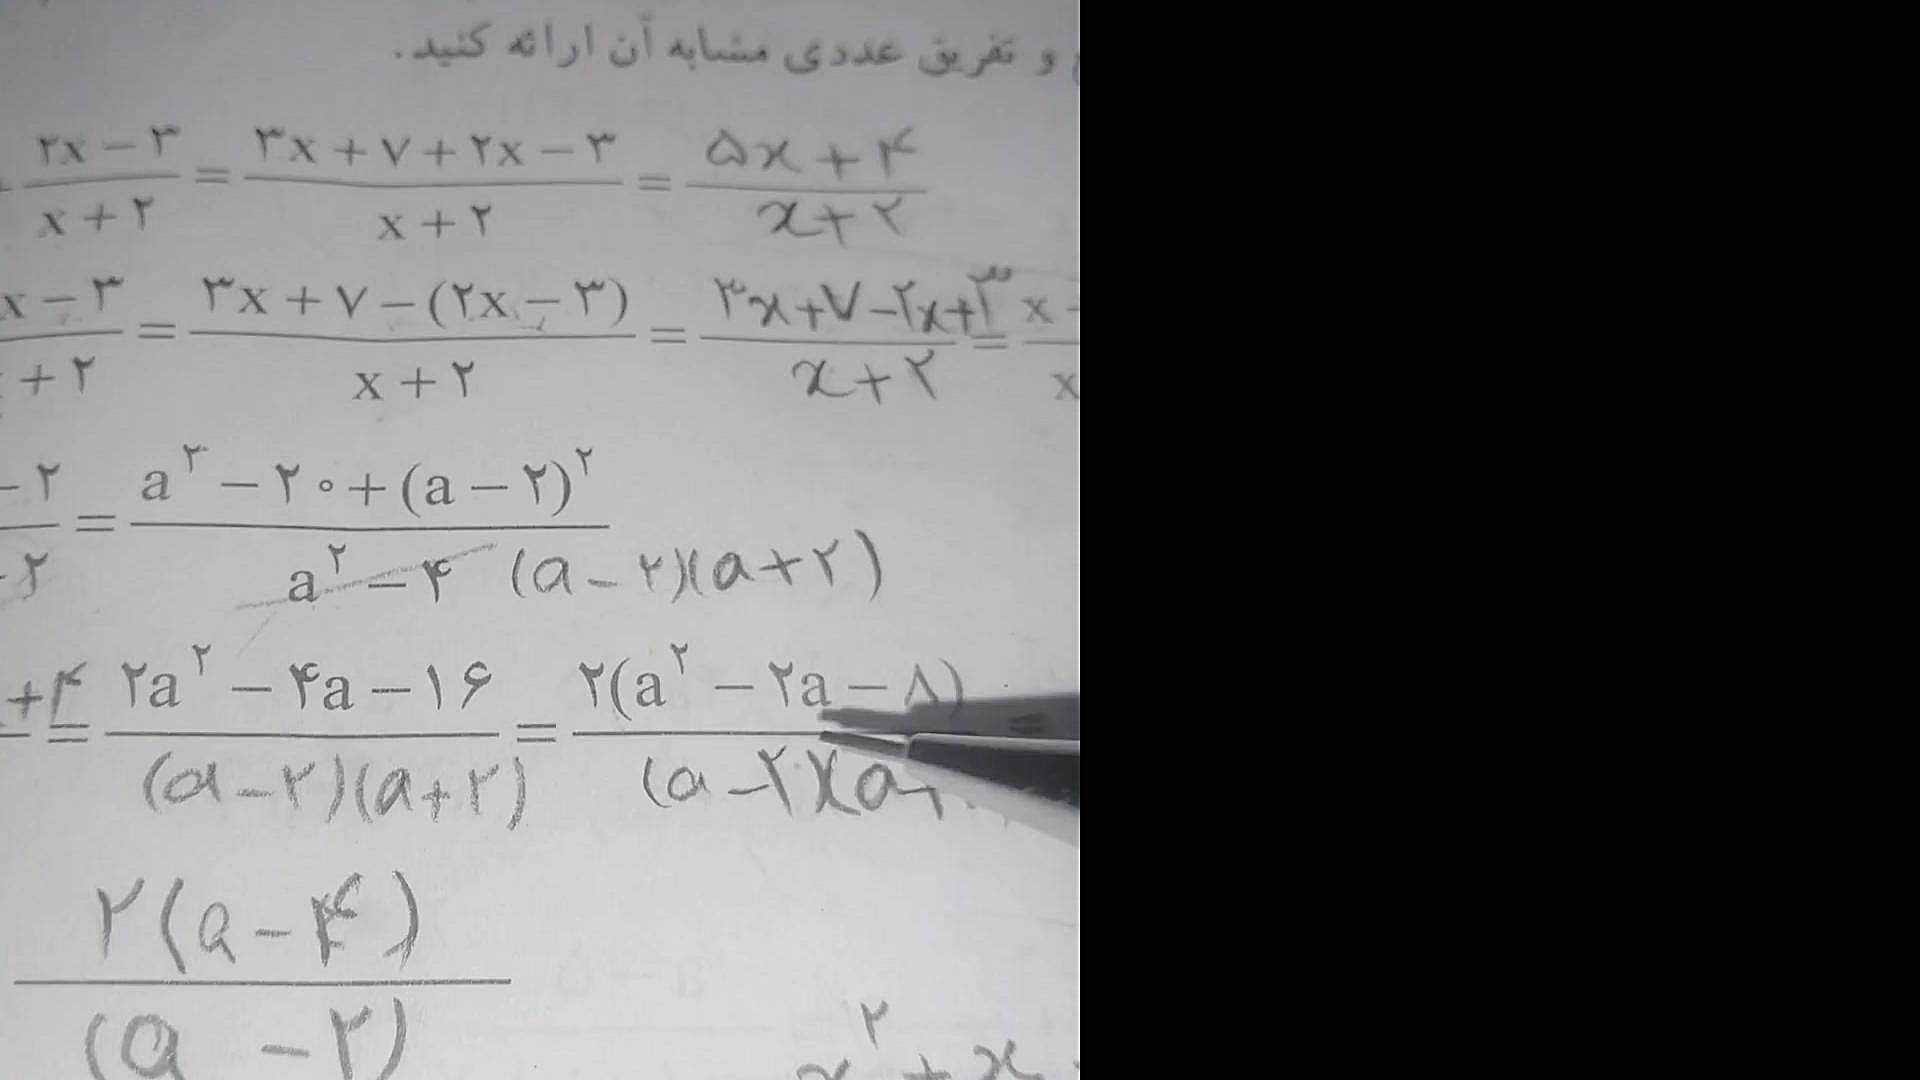 و تفریق عددی مشابه آن ارائه کنید.
۲x − ۳ / x + ۲ = ۳x + ۷ + ۲x − ۳ / x + ۲ = ۵x + ۴ / x + ۲
x − ۳ / + ۲ = ۳x + ۷ − (۲x − ۳) / x + ۲ = ۳x + ۷ − ۲x + ۳ / x + ۲ = x / x
− ۲ / − ۲ = a² − ۲۰ + (a − ۲)² / a² − ۴ (a − ۲)(a + ۲)
+ ۴ = ۲a² − ۴a − ۱۶ / (a − ۲)(a + ۲) = ۲(a² − ۲a − ۸) / (a − ۲)(a + =
۲(a − ۴) / (a − ۲)
x² + x